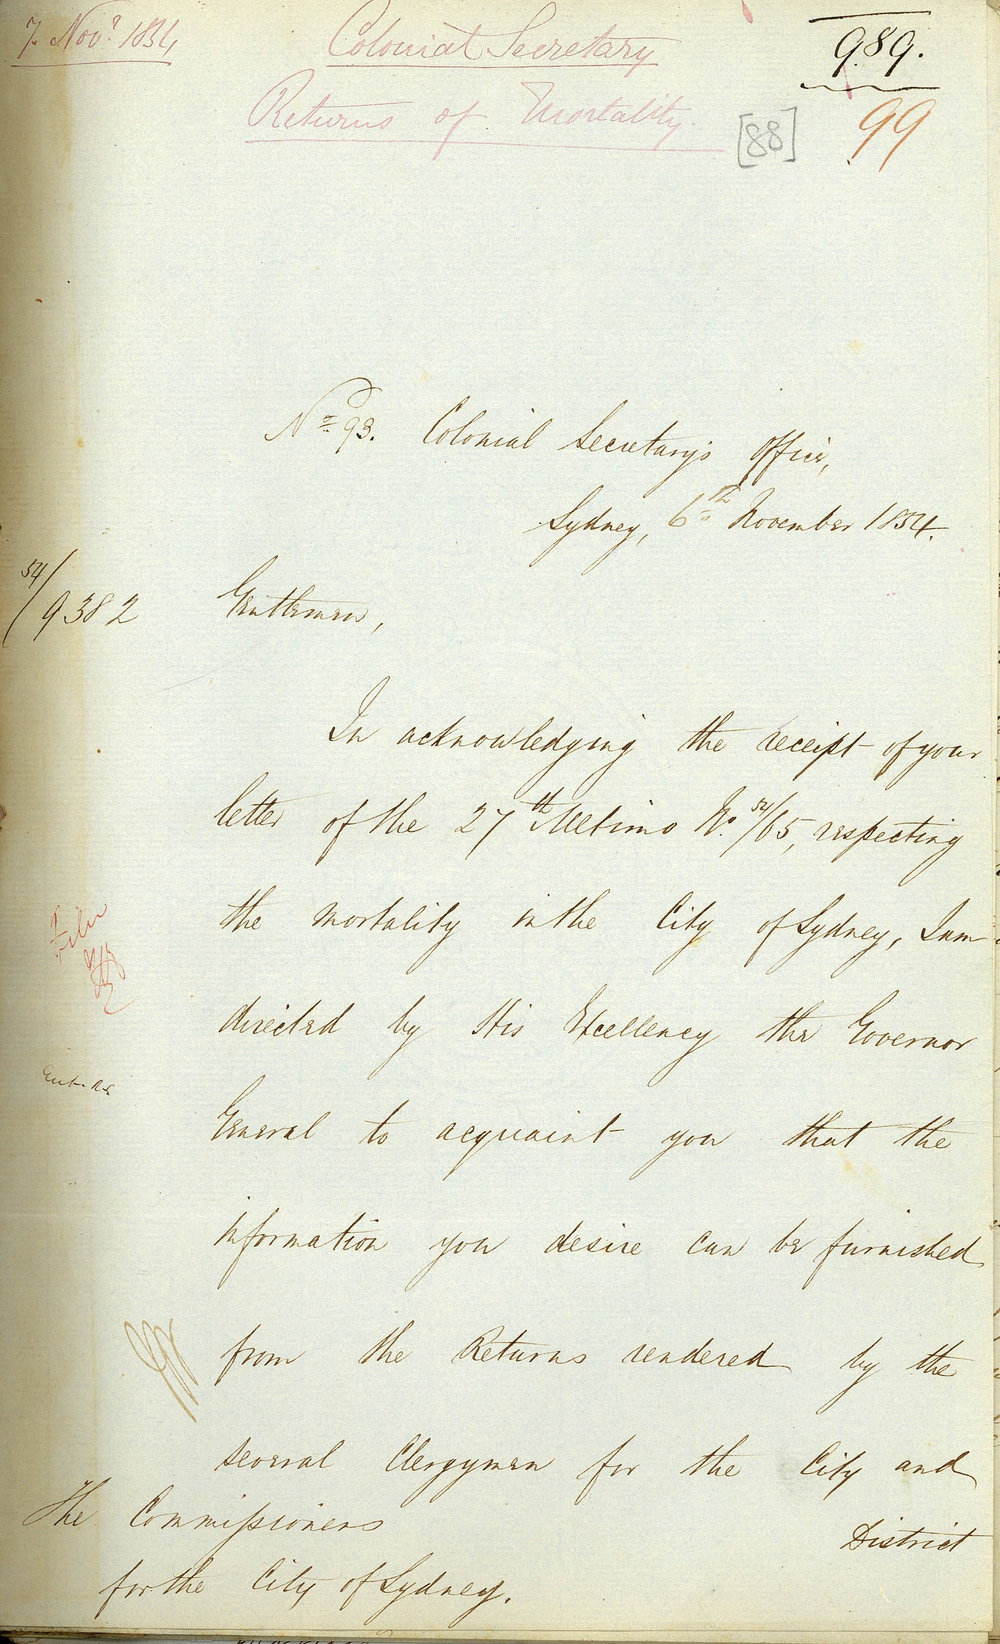 7. Novr. 1854
Colonial Secretary
989.
Returns of Mortality
[88]
99
No. 93. Colonial Secretary's Office,
Sydney, 6th November 1854.
54/9382
Gentlemen,
In acknowledging the receipt of your
letter of the 27th Ultimo No. 54/65, respecting
the mortality in the City of Sydney, I am
directed by His Excellency the Governor
General to acquaint you that the
information you desire can be furnished
from the Returns rendered by the
several Clergymen for the City and
District
The Commissioners
for the City of Sydney.